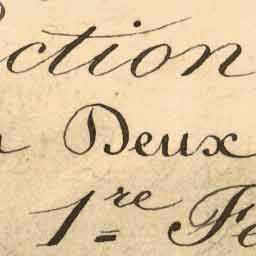 ction
Deux
1re Fe